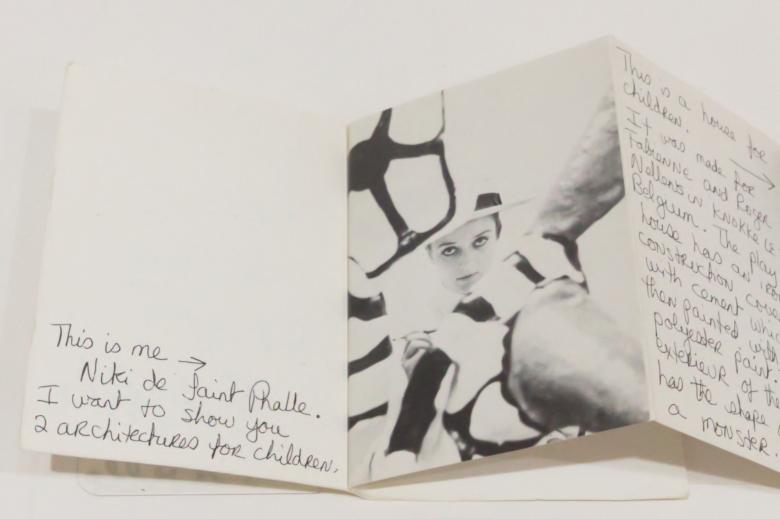 This is me →
Niki de Saint Phalle.
I want to show you
2 architectures for children.
This is a house for
children. →
It was made for
Fabienne and Roger
Nellens in Knokke le
Belgium. The play
house has an iron
construction
with cement
then painted with
polyester paint.
Exterieur of the
has the shape
a monster.